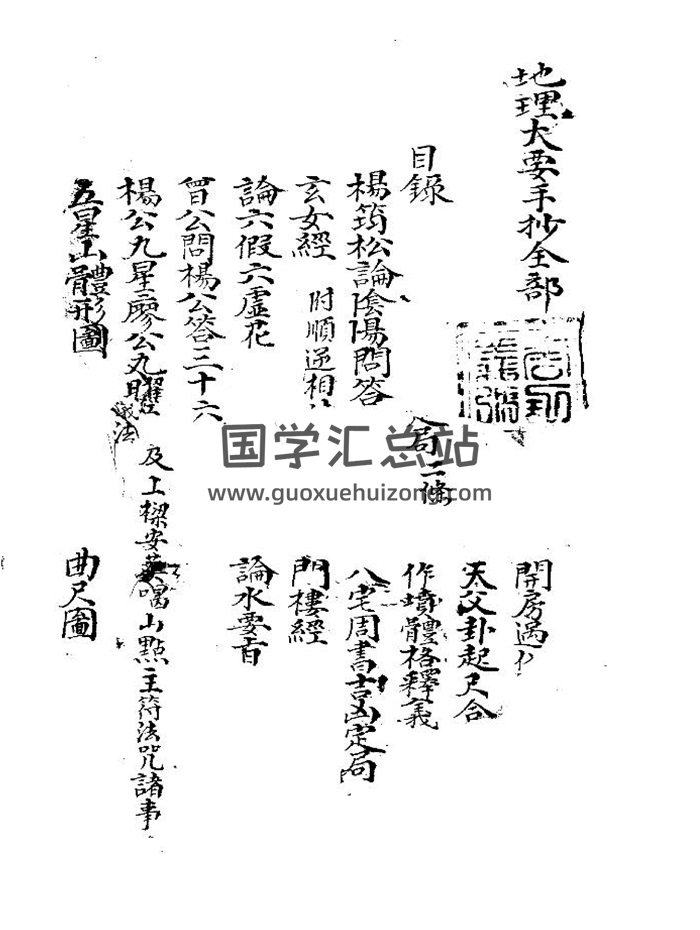 地理大要手抄全部
目錄
楊筠松論陰陽問答
玄女經 附順逆相
論六假六虛花
曾公問楊公答三十六
楊公九星廖公九曜
法
五星山體形圖
開房遇
天父卦起尺合
局二條
作墳體格釋義
八宅周書吉凶定局
門樓經
論水要旨
及上樑安葬喝山點主符法咒諸事
曲尺圖
国学汇总站
www.guoxuehuizong.com